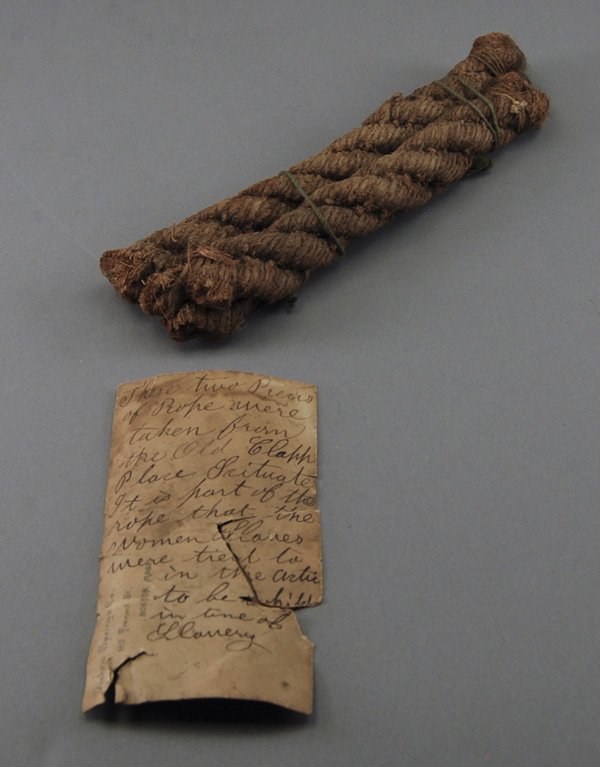 These two Pieces
of Rope were
taken from
the Old Clapp
Place Scituate
It is part of the
rope that the
women Slaves
were tied to
in the attic
to be whi
in time of
Slavery
BOSTON